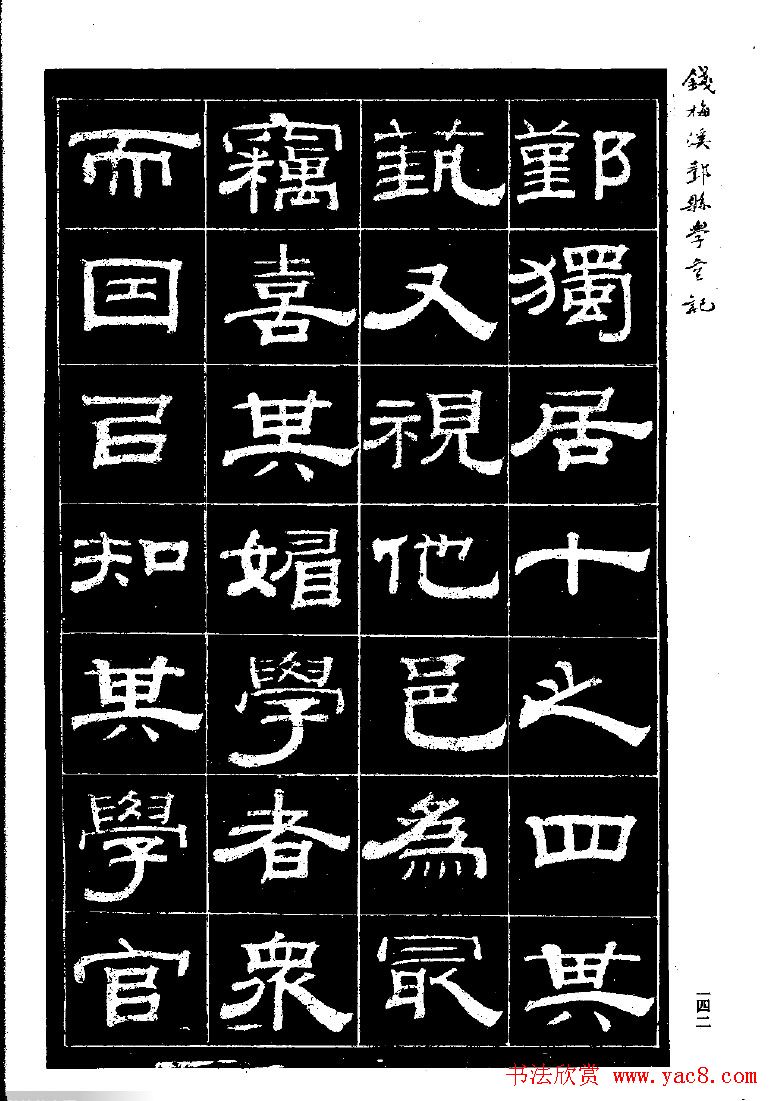 錢梅溪鄞縣學記
鄞獨居十之四其
蓺又視他邑為最
竊喜其媢學者衆
而因㠯知其學官
一四二
书法欣赏 www.yac8.com